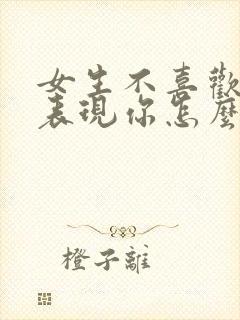 女生不喜歡
表現你怎麼
橙子離